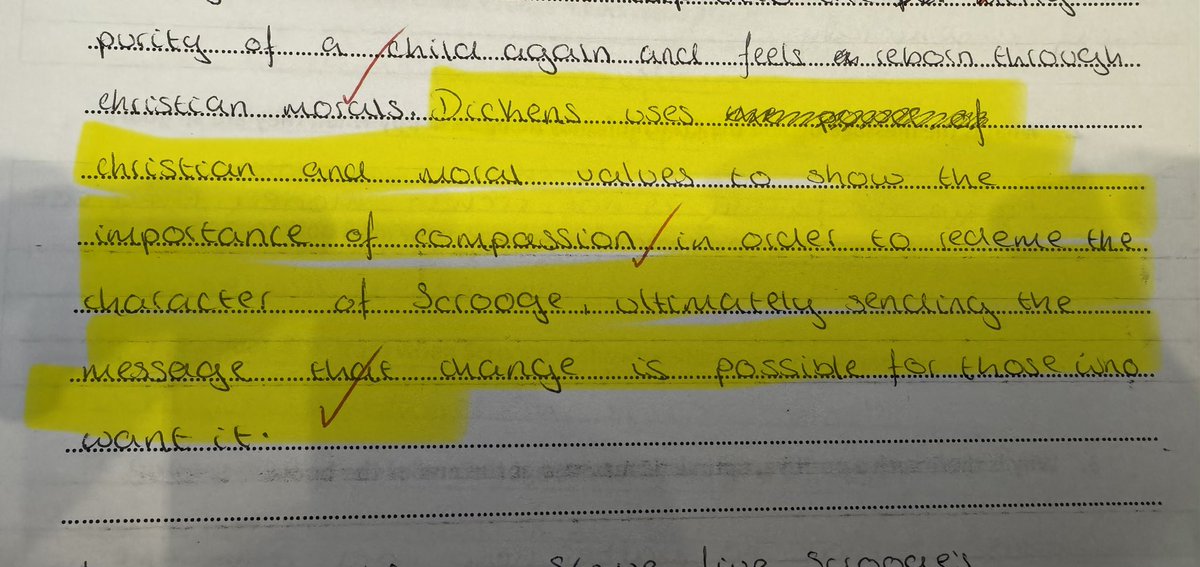 purity of a child again and feels reborn through
christian morals. Dickens uses
christian and moral values to show the
importance of compassion in order to redeme the
character of Scrooge, ultimately sending the
message that change is possible for those who
want it.
Scrooge's